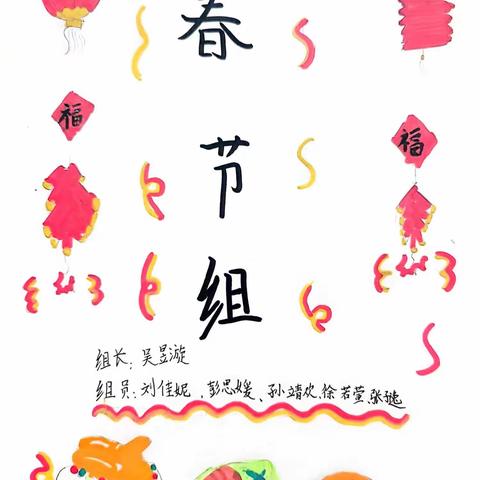 春节组
福
福
组长：吴昱漩
组员：刘佳妮、彭思媛、孙靖欢、徐若萱、张